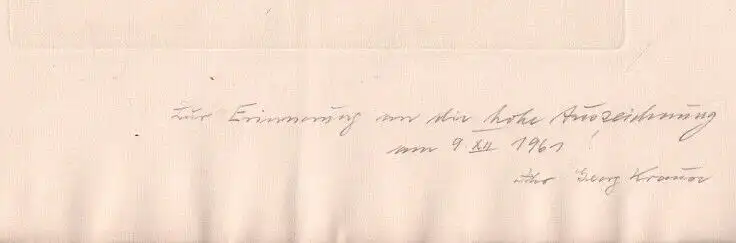 Zur Erinnerung an die hohe Auszeichnung
am 9. XII 1961 !
Ihr Georg